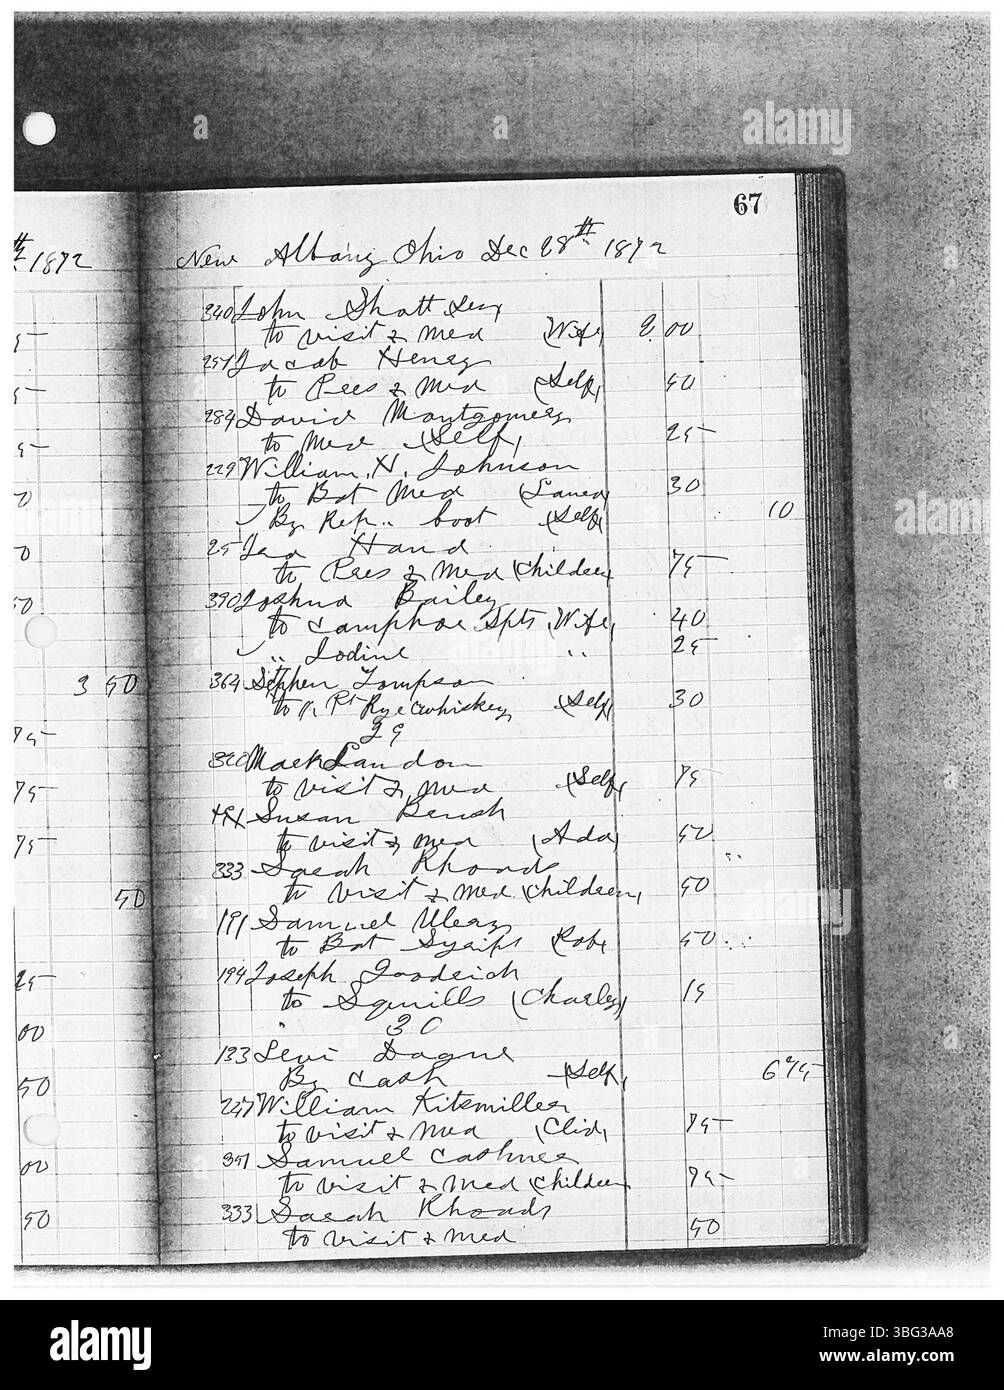 67
1872
New Albany Ohio Dec 28th 1872
340 John Shott Senr
to visit & med (Wife) 2.00
Jacob Henry
to Pres & Med (Self) 50
284 David Montgomery
to Med (Self) 25
229 William H. Johnson
to Bot Med 30
By Rep boot (Self) 10
25 Hand
to Pres & Med (Children 75
390 Joshua Bailey
to camphor spts (Wife) 40
" Iodine " 25
364 Stephen Tompson
to Pt Rye whiskey (Self) 30
29
Mack Landon
to visit & med (Self) 75
Susan
to visit & med (Ada) 50
333 Sarah Rhoads
to visit & med (Children) 50
191 Samuel Ulery
to Bot Syrips (Rob) 50
194 Joseph Goodrich
to Squills (Charley) 15
" 30
133 Levi Dague
By Cash (Self) 6 75
247 William Kitsmiller
to visit & med 75
351 Samuel Cashner
to visit & med (Children 75
333 Sarah Rhoads
to visit & med 50
3 50
75
75
75
50
25
00
50
00
50
alamy
Image ID: 3BG3AA8
www.alamy.com